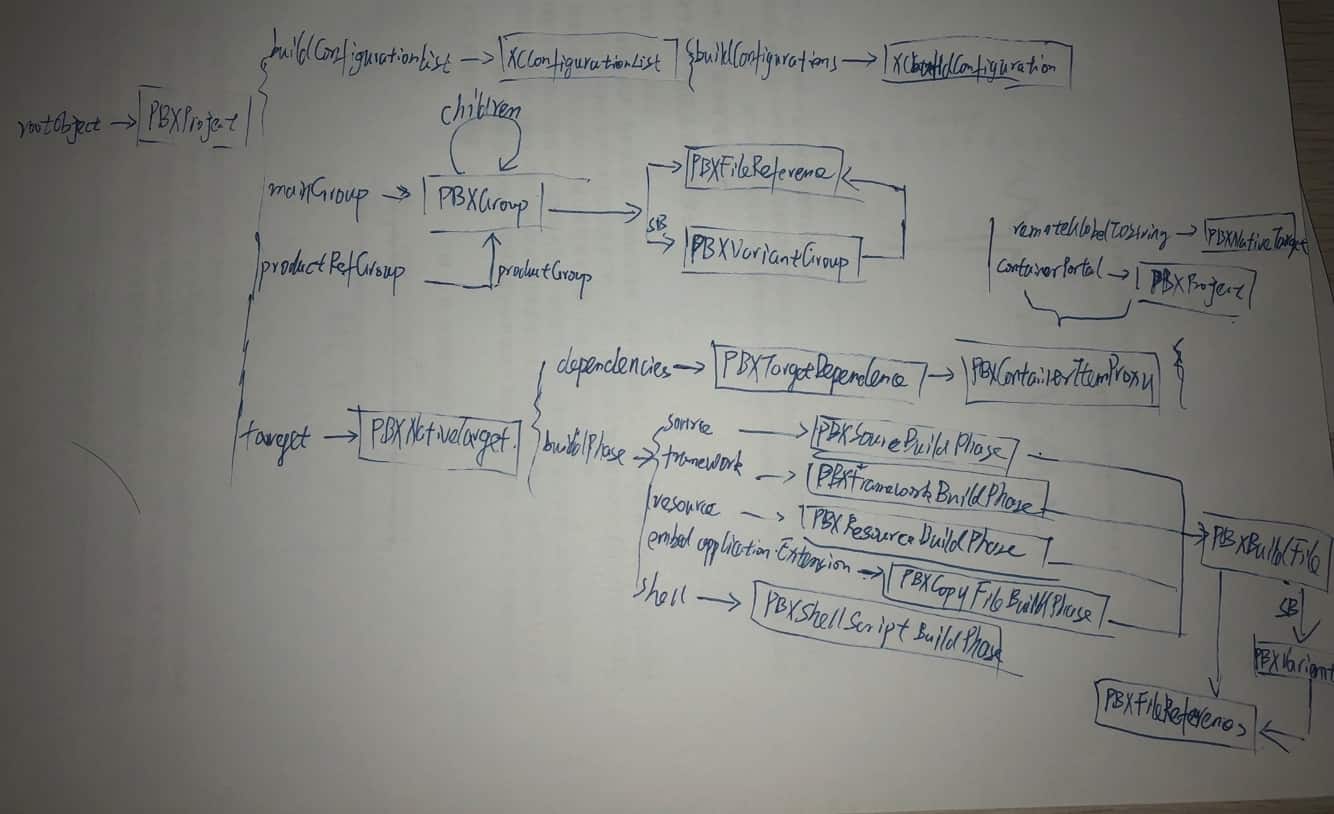 buildConfigurationList → XCConfigurationList { buildConfigurations → XCbuildConfiguration
rootObject → PBXProject
children
mainGroup → PBXGroup
PBXFileReference
SB
PBXVariantGroup
productRefGroup
productGroup
remoteGlobalIDString → PBXNativeTarget
containerPortal → PBXProject
dependencies → PBXTargetDependence → PBXContainerItemProxy {
target → PBXNativeTarget
buildPhase →
source → PBXSourceBuildPhase
framework → PBXFrameworkBuildPhase
resource → PBXResourceBuildPhase
embed application Extension → PBXCopyFileBuildPhase
shell → PBXShellScriptBuildPhase
PBXBuildFile
SB
PBXVariant
PBXFileReferences